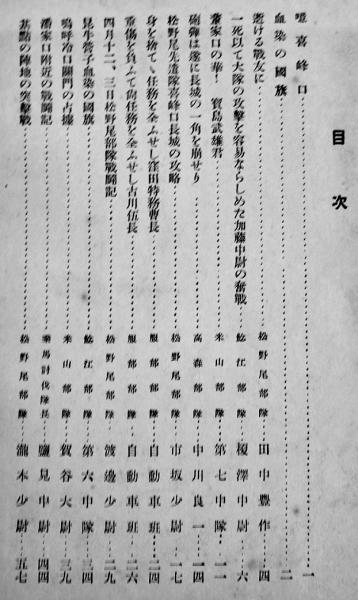 目次
噫喜峰口……一
血染の國旗……二
逝ける戰友に……松野尾部隊 田中豊作……四
一死以て大隊の攻擊を容易ならしめた加藤中尉の奮戰……鯰江部隊 榎澤中尉……六
董家口の華！ 寳島武雄君……米山部隊 第七中隊……一一
砲彈は遂に長城の一角を崩せり……高森部隊 中川良一……一四
松野尾先遣隊喜峰口長城の攻略……松野尾部隊 市坂少尉……一七
身を捨てゝ任務を全ふせし窪田特務曹長……服部部隊 自動車班……二四
重傷を負ふて尙任務を全ふせし古川伍長……服部部隊 自動車班……二六
四月十二、三日松野尾部隊戰鬪記……松野尾部隊 渡邊少尉……二九
晃牛營子血染の國旗……鯰江部隊 第六中隊……三四
嗚呼冷口關門の占據……米山部隊 賀谷大尉……三九
潘家口附近の戰鬪記……乘馬討伐隊長 鹽見中尉……四四
基點の陣地の突擊戰……松野尾部隊 瀧本少尉……五七